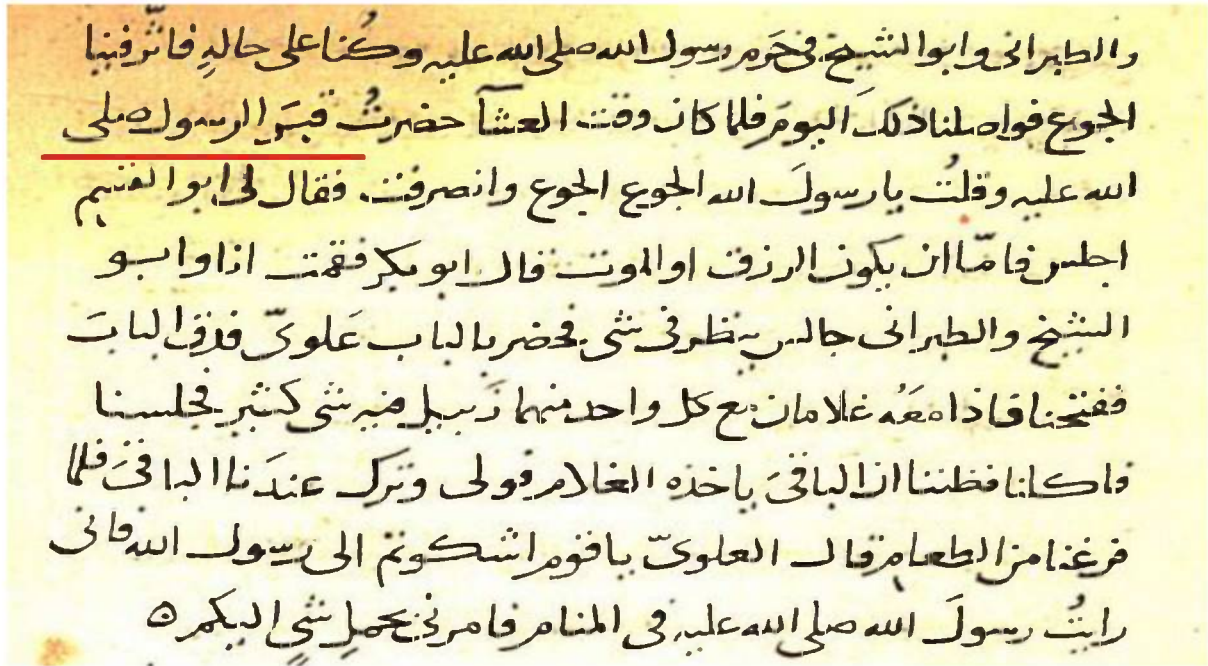 والطبراني وابو الشيخ في حَرَم رسول الله صلى الله عليه وكُنا على حالةٍ فاثّر فينا
الجوع فواصلنا ذلك اليومَ فلما كان وقت العشآ حضرتُ قبرَ الرسول صلى
الله عليه وقلتُ يا رسولَ الله الجوع الجوع وانصرفت فقال لي ابو الشيخ
اجلس فامّا ان يكون الرزق او الموت قال ابو بكر فقمت انا وابو
الشيخ والطبراني جالس ينظر في شي فحضر بالباب عَلويّ فدق البابَ
ففتحنا فاذا معَه غلامان مع كل واحد منهما زنبيل فيه شي كثير فجلسنا
فاكلنا فظننا ان الباقيَ ياخذه الغلام فولى وترك عندَنا الباقيَ فلما
فرغنا من الطعام قال العلويّ يا قوم اشكوتم الى رسول الله فاني
رايتُ رسولَ الله صلى الله عليه في المنام فامرني بحملِ شيٍ اليكم ه